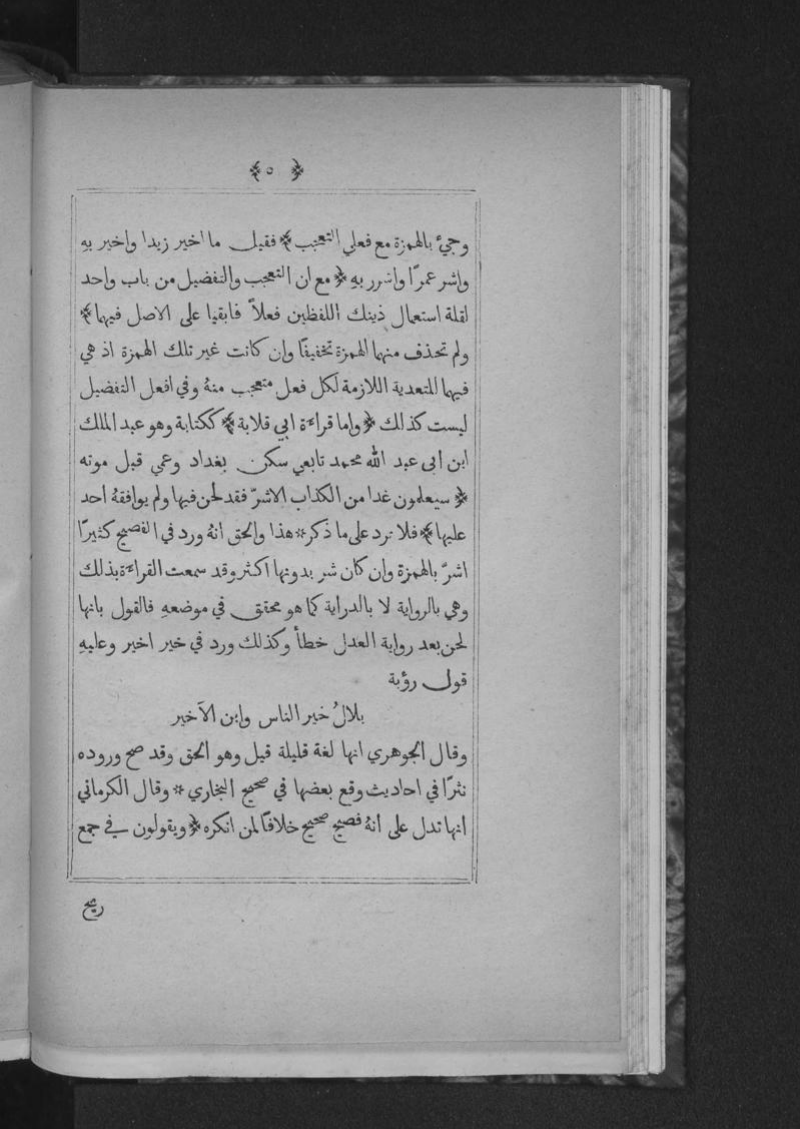 ﴿ ٥ ﴾
وجيء بالهمزة مع فعلي التعجب ﴾ فقيل ما اخير زيدا واخير بهِ
واشر عمرًا واشرر بهِ ﴿ مع ان التعجب والتفضيل من باب واحد
لقلة استعمال ذينك اللفظين فعلاً فابقيا على الاصل فيهما ﴾
ولم تحذف منهما الهمزة تخفيفًا وان كانت غير تلك الهمزة اذ هي
فيهما للتعدية اللازمة لكل فعل متعجب منهُ وفي افعل التفضيل
ليست كذلك ﴿ واما قراءة ابي قلابة ﴾ ككتابة وهو عبد الملك
ابن ابى عبد الله محمد تابعي سكن بغداد وعي قبل موته
﴿ سيعلمون غدا من الكذاب الاشرّ فقد لحن فيها ولم يوافقهُ احد
عليها ﴾ فلا ترد على ما ذكر * هذا والحق انهُ ورد في الفصيح كثيرًا
اشرّ بالهمزة وان كان شر بدونها اكثر وقد سمعت القراءة بذلك
وهي بالرواية لا بالدراية كما هو محقق في موضعهِ فالقول بانها
لحن بعد رواية العدل خطأ وكذلك ورد في خير اخير وعليهِ
قول رؤبة
بلالُ خير الناس وابن الآخير
وقال الجوهري انها لغة قليلة قيل وهو الحق وقد صح وروده
نثرًا في احاديث وقع بعضها في صحيح البخاري * وقال الكرماني
انها تدل على انهُ فصيح صحيح خلافًا لمن انكره ﴿ ويقولون في جمع
ريح